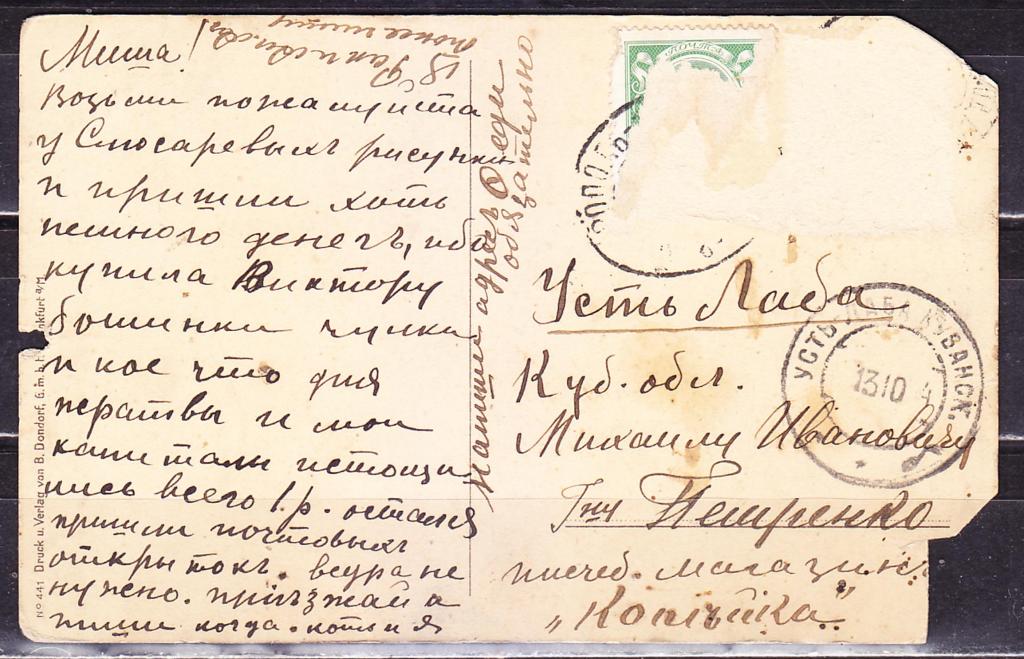 Миша!
Возьми пожалуйста
у Слюсаревыхъ рисунки
и пришли хоть
немного денегъ, ибо
купила Виктору
ботинки чулки
и кое что для
и мои
капиталы истощи
лись всего 1 р. остался
пришли почтовыхъ
открытокъ. ведра не
нужно. пріѣзжай а
пиши когда.
18
напиши адресъ
обязательно
ПОЧТА
Усть Лаба
Куб. обл.
Михаилу Ивановичу
Гну Петренко
писчеб. магазинъ
„Копѣйка".
УСТЬ-ЛАБА КУБАНСК
1310
No 441 Druck u. Verlag von B. Dondorf, G. m. b. H. Frankfurt a/M